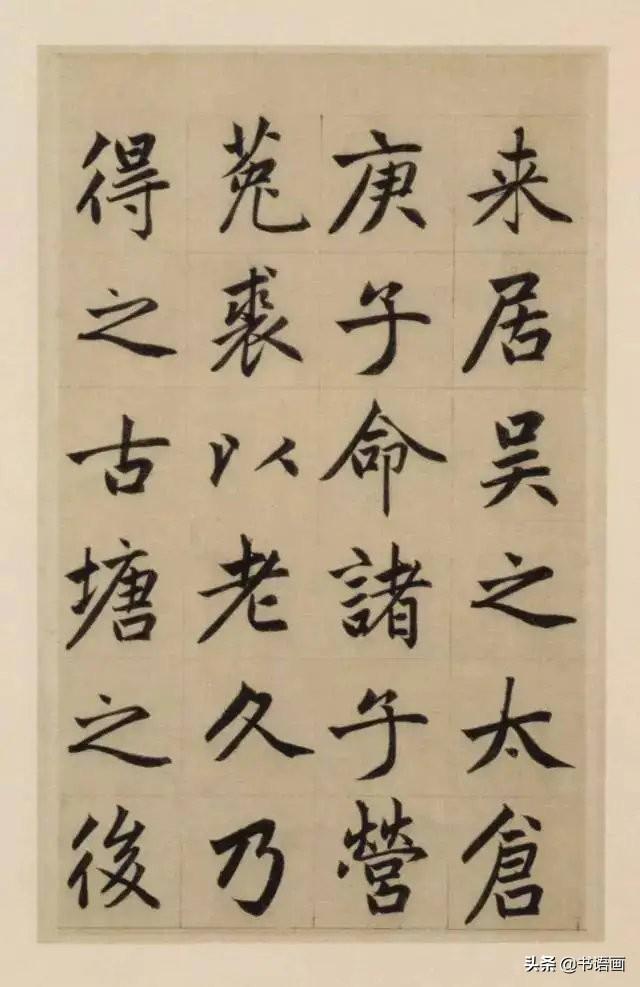 来居吴之太倉
庚子命諸子營
菟裘以老久乃
得之古塘之後
头条 @书语画